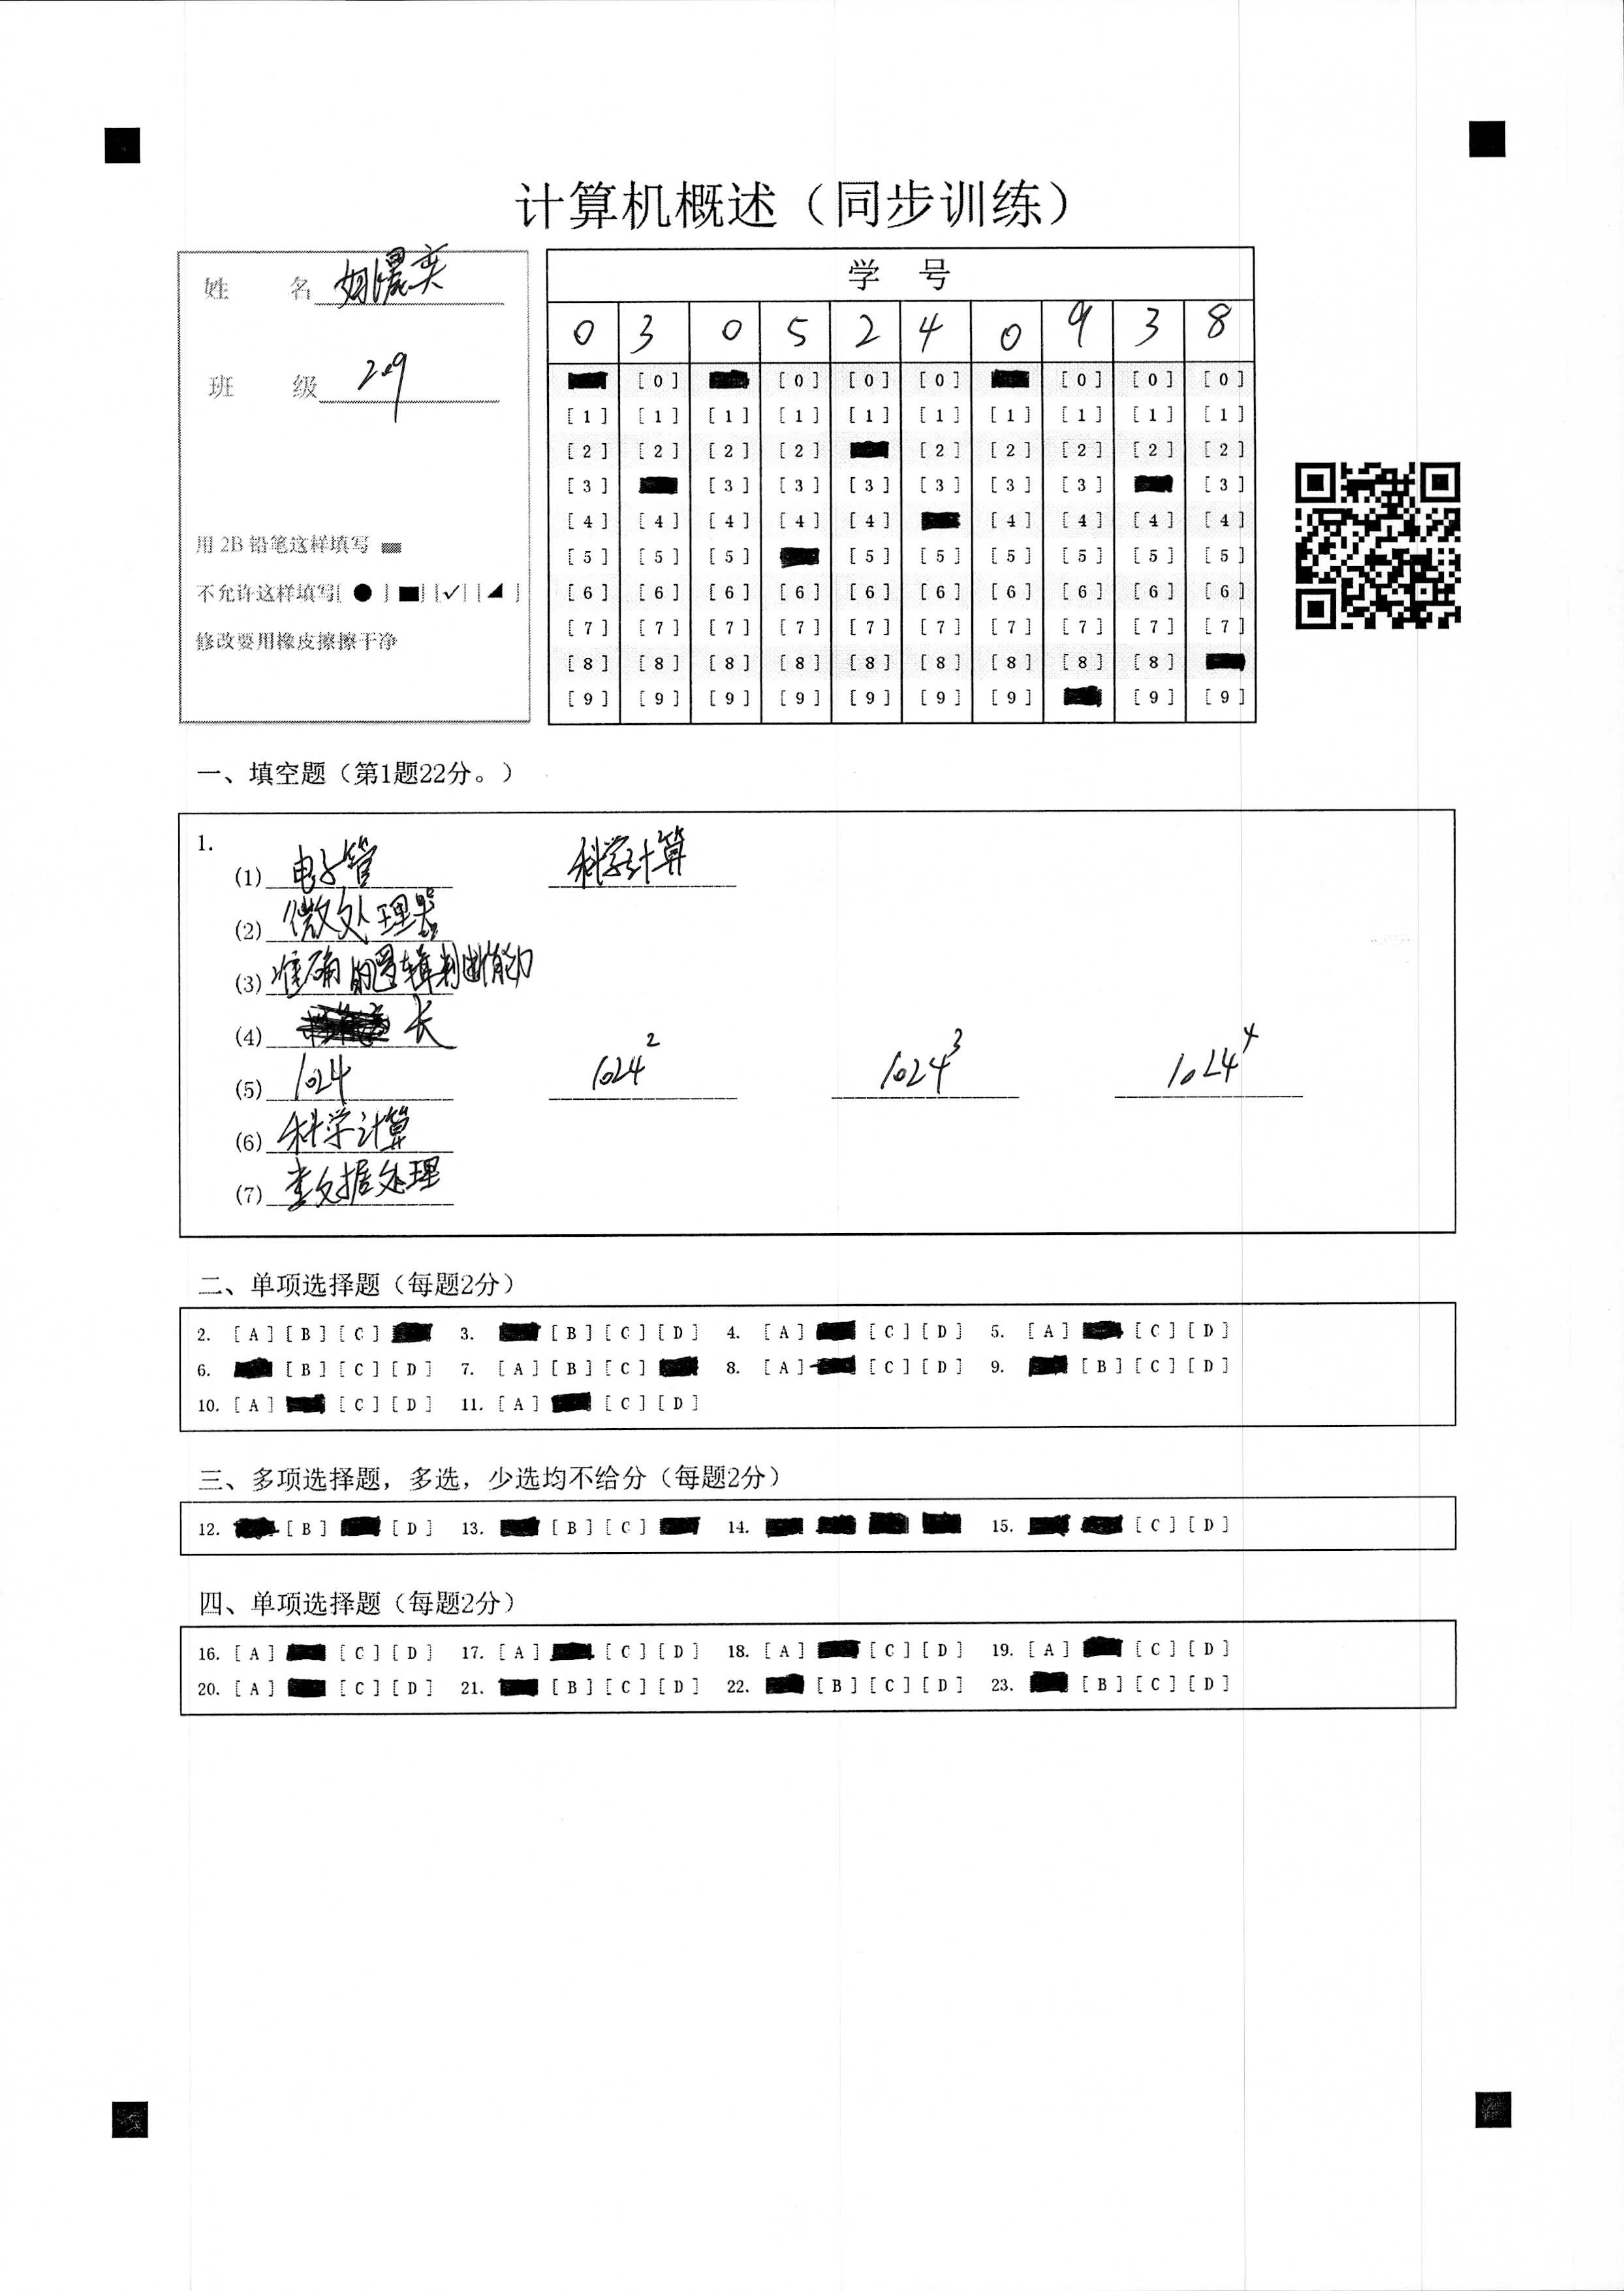 计算机概述（同步训练）
姓 名
班 级 209
用 2B 铅笔这样填写
不允许这样填写[ ● ] [■] [✓] [◢ ]
修改要用橡皮擦擦干净
学 号
0 3 0 5 2 4 0 9 3 8
[0] [0] [0] [0] [0] [0] [0]
[1] [1] [1] [1] [1] [1] [1] [1] [1] [1]
[2] [2] [2] [2] [2] [2] [2] [2] [2]
[3] [3] [3] [3] [3] [3] [3] [3]
[4] [4] [4] [4] [4] [4] [4] [4] [4]
[5] [5] [5] [5] [5] [5] [5] [5] [5]
[6] [6] [6] [6] [6] [6] [6] [6] [6] [6]
[7] [7] [7] [7] [7] [7] [7] [7] [7] [7]
[8] [8] [8] [8] [8] [8] [8] [8] [8]
[9] [9] [9] [9] [9] [9] [9] [9] [9]
一、填空题（第1题22分。）
1.
(1) 电子管 科学计算
(2) 微处理器
(3) 准确的逻辑判断能力
(4) 长
(5) 1024 1024² 1024³ 1024⁴
(6) 科学计算
(7) 数据处理
二、单项选择题（每题2分）
2. [A] [B] [C] 3. [B] [C] [D] 4. [A] [C] [D] 5. [A] [C] [D]
6. [B] [C] [D] 7. [A] [B] [C] 8. [A] [C] [D] 9. [B] [C] [D]
10. [A] [C] [D] 11. [A] [C] [D]
三、多项选择题，多选，少选均不给分（每题2分）
12. [B] [D] 13. [B] [C] 14. 15. [C] [D]
四、单项选择题（每题2分）
16. [A] [C] [D] 17. [A] [C] [D] 18. [A] [C] [D] 19. [A] [C] [D]
20. [A] [C] [D] 21. [B] [C] [D] 22. [B] [C] [D] 23. [B] [C] [D]